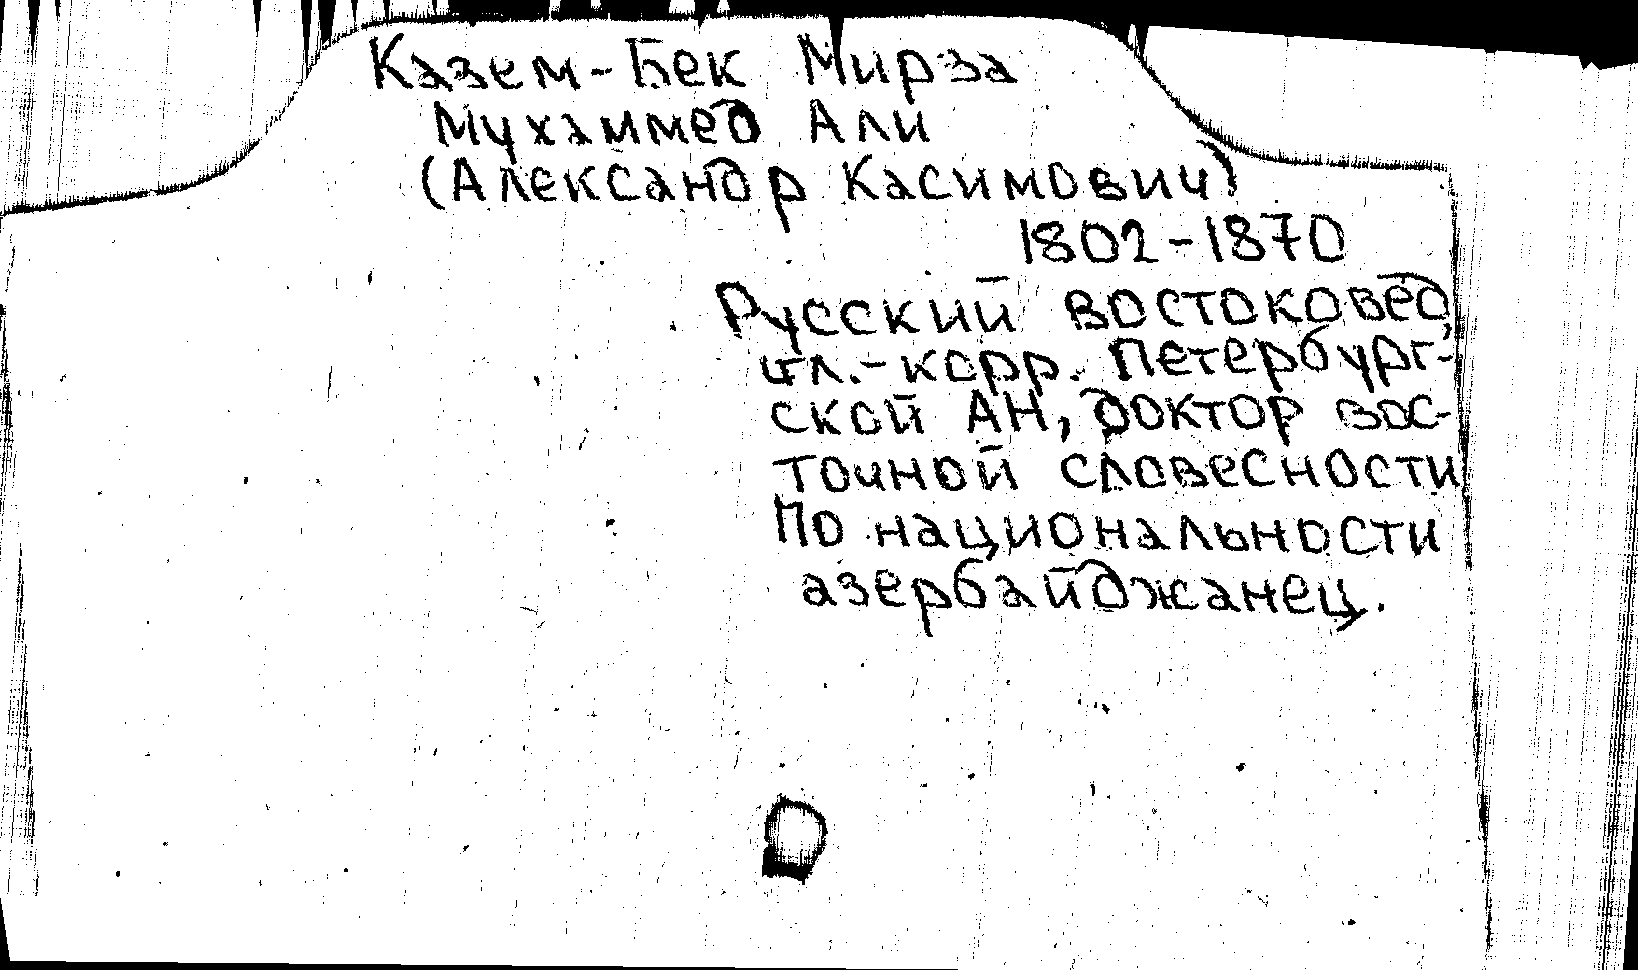 Казем-Бек Мирза
Мухаммед Али
(Александр Касимович)
1802-1870
Русский востоковед,
чл.-корр. Петербург-
ской АН, доктор вос-
точной словесности
По национальности
азербайджанец.